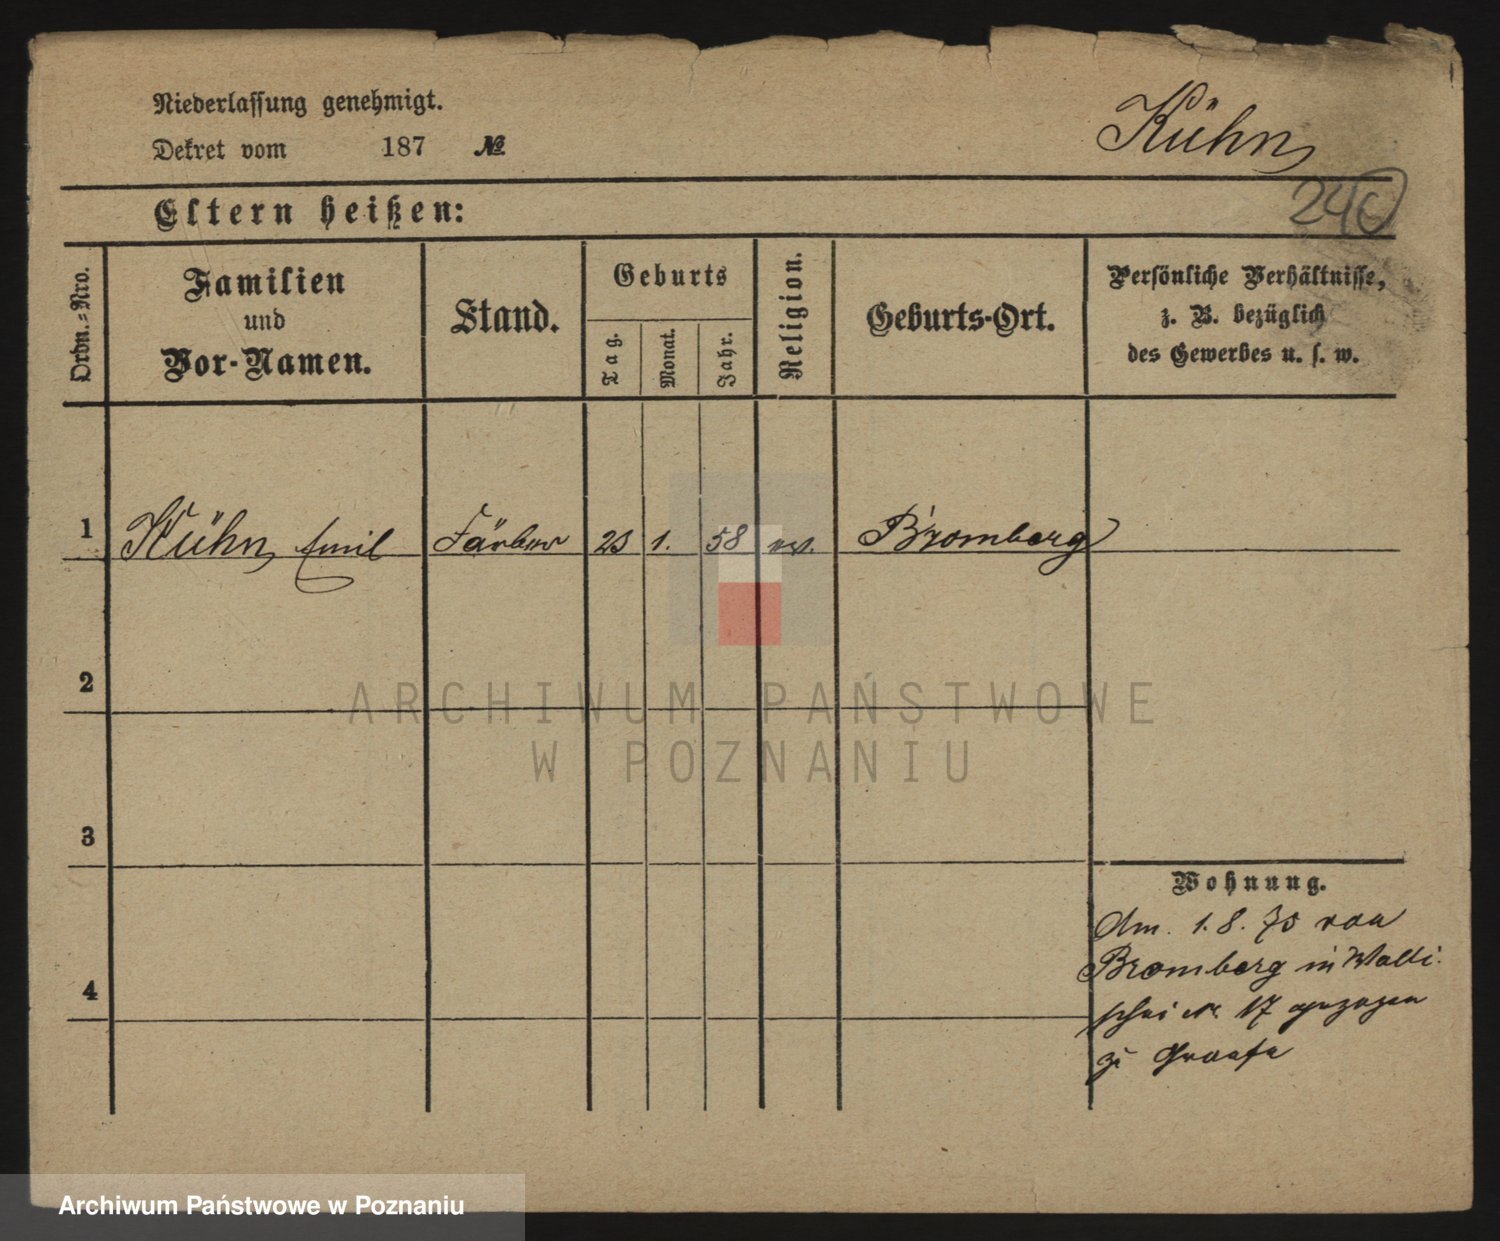 Niederlassung genehmigt.
Dekret vom 187 №
Kühn
246
Eltern heißen:
Ordn.-Nro.
Familien
und
Vor-Namen.
Stand.
Geburts
Tag.
Monat.
Jahr.
Religion.
Geburts-Ort.
Persönliche Verhältnisse,
z. B. bezüglich
des Gewerbes u. s. w.
1 Kühn Emil Färber 23 1. 58 ev. Bromberg
2
3
4
Wohnung.
Am. 1. 8. 75 von
Bromberg in Walli-
schei № 17 gezogen
zu
ARCHIWUM PAŃSTWOWE
W POZNANIU
Archiwum Państwowe w Poznaniu